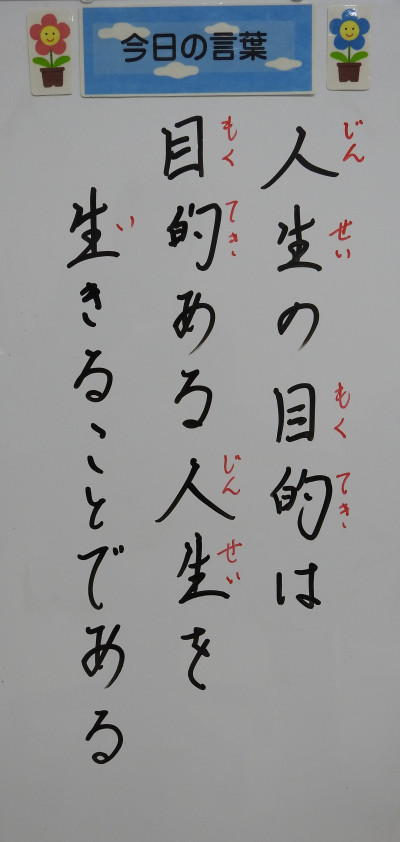 今日の言葉
人生の目的は
じんせい もくてき
目的ある人生を
もくてき じんせい
生きることである
い